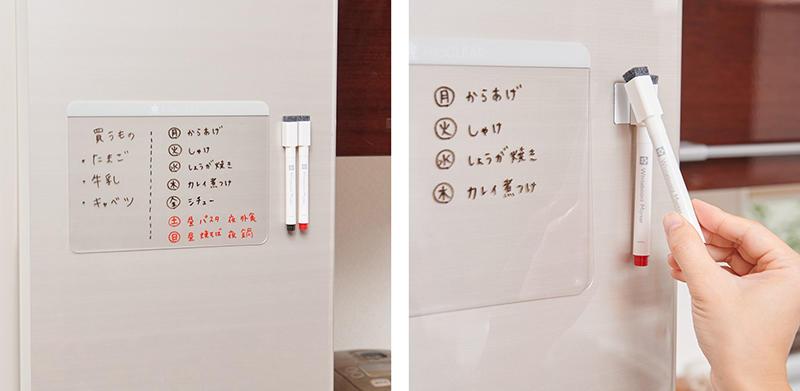 買うもの
・たまご
・牛乳
・キャベツ
月 からあげ
火 しゃけ
水 しょうが焼き
木 カレイ煮つけ
金 シチュー
土 昼 パスタ 夜 外食
日 昼 焼そば 夜 鍋
月 からあげ
火 しゃけ
水 しょうが焼き
木 カレイ煮つけ
Whiteboard Marker
Whiteboard Marker